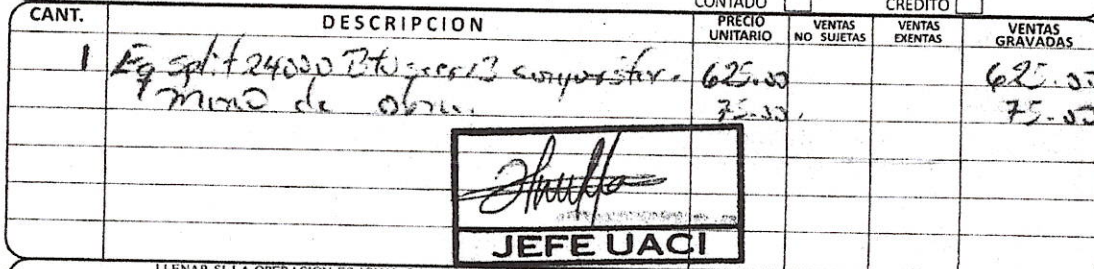 CONTADO CREDITO
CANT. DESCRIPCION PRECIO UNITARIO VENTAS NO SUJETAS VENTAS EXENTAS VENTAS GRAVADAS
1 Eq split 24000 Btu 625.00 625.00
Mano de obra. 75.00. 75.00
JEFE UACI
LLENAR SI LA OPERACION ES